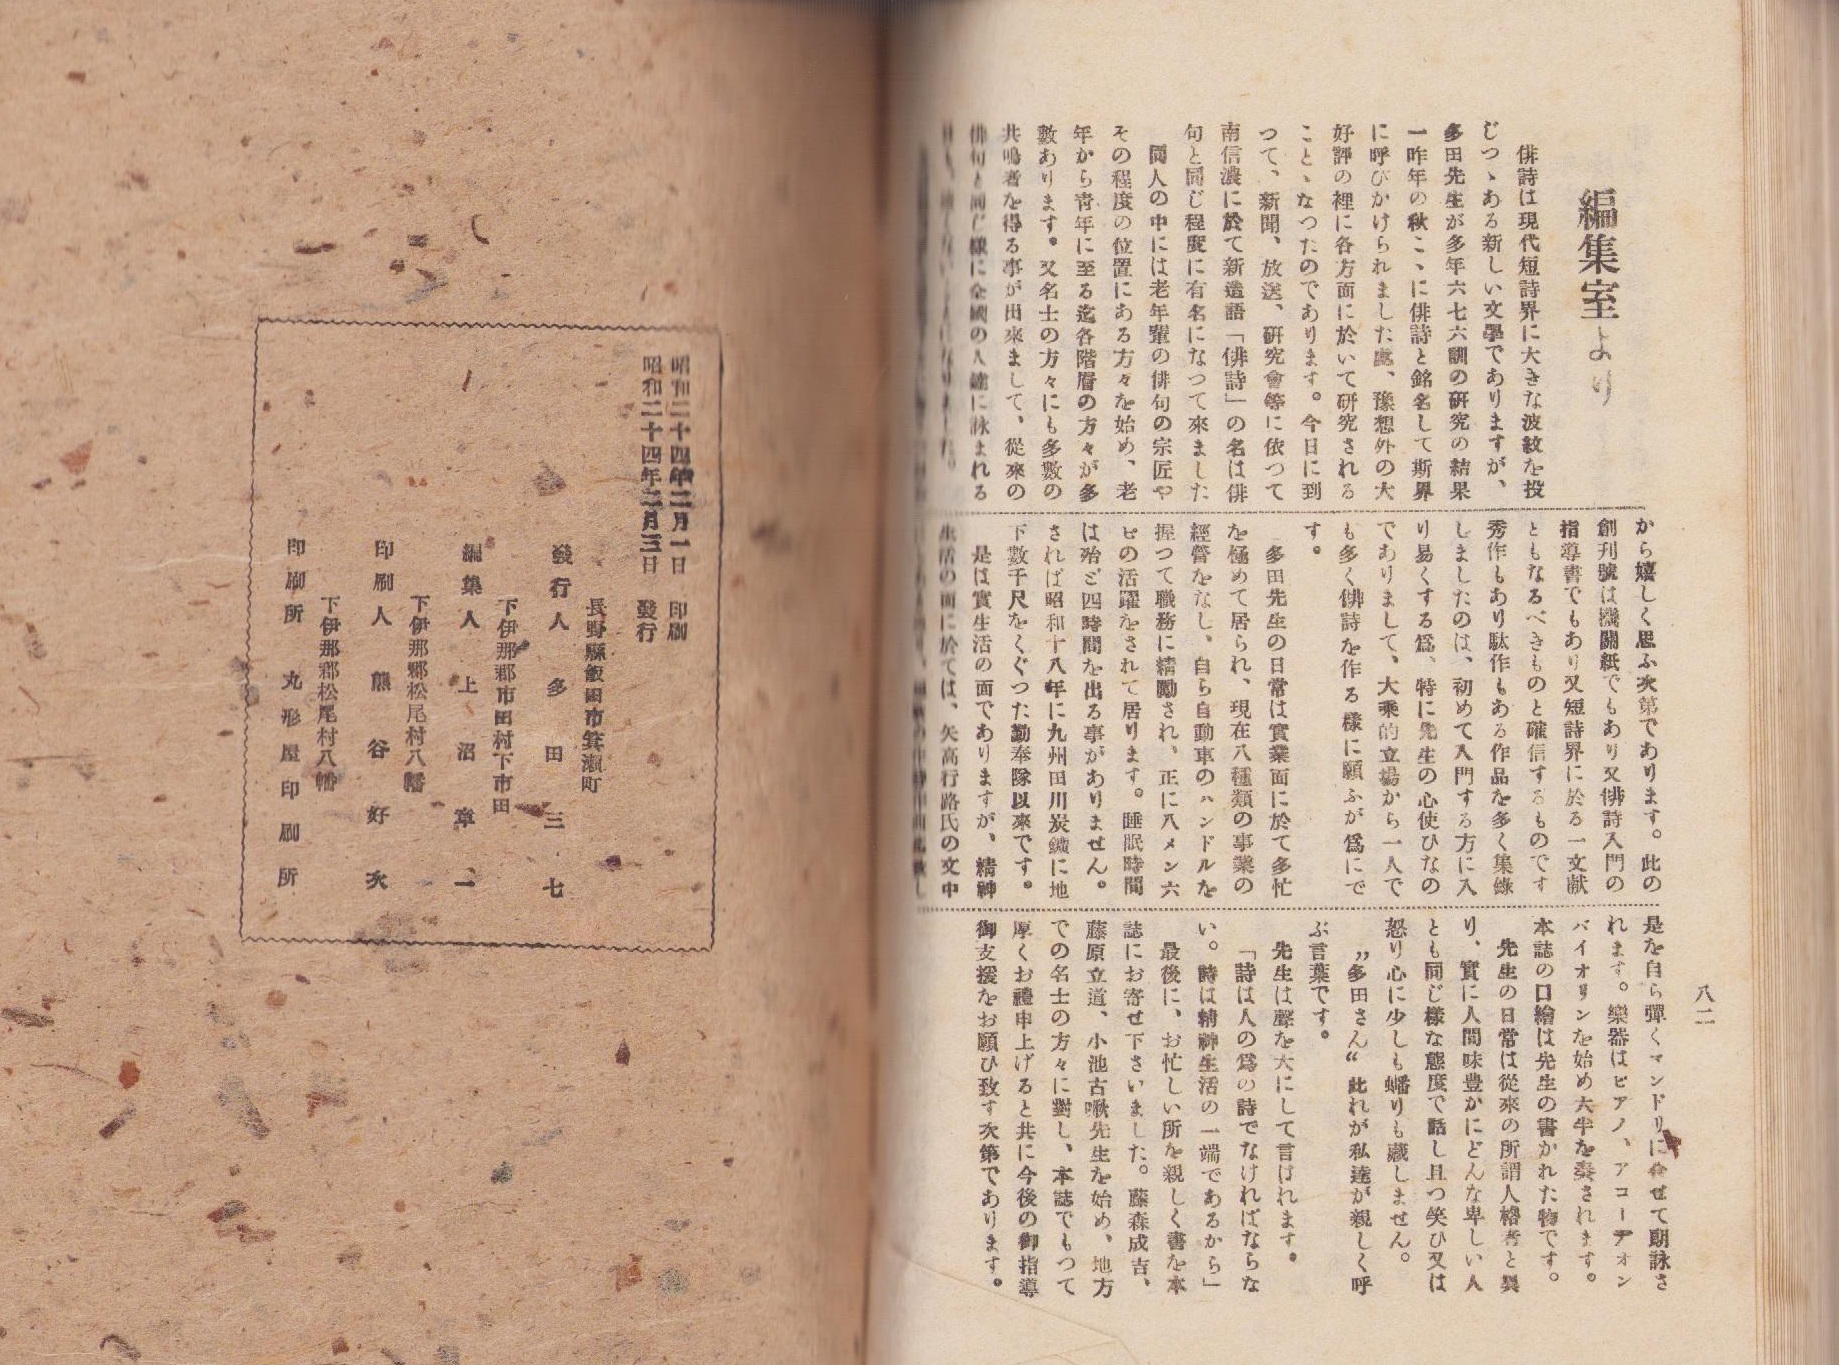 八二
編集室より
俳詩は現代短詩界に大きな波紋を投
じつゝある新しい文學でありますが、
多田先生が多年六七六調の研究の結果
一昨年の秋こゝに俳詩と銘名して斯界
に呼びかけられました處、豫想外の大
好評の裡に各方面に於いて研究される
ことゝなつたのであります。今日に到
つて、新聞、放送、研究會等に依つて
南信濃に於て新造語「俳詩」の名は俳
句と同じ程度に有名になつて來ました
同人の中には老年輩の俳句の宗匠や
その程度の位置にある方々を始め、老
年から青年に至る迄各階層の方々が多
數あります。又名士の方々にも多數の
共鳴者を得る事が出來まして、從來の
俳句と同じ様に全國の人達に詠まれる
から嬉しく思ふ次第であります。此の
創刊號は機關紙でもあり又俳詩入門の
指導書でもあり又短詩界に於る一文献
ともなるべきものと確信するものです
秀作もあり駄作もある作品を多く集錄
しましたのは、初めて入門する方に入
り易くする爲、特に先生の心使ひなの
でありまして、大乘的立場から一人で
も多く俳詩を作る様に願ふが爲にで
す。
多田先生の日常は實業面に於て多忙
を極めて居られ、現在八種類の事業の
經營をなし、自ら自動車のハンドルを
握つて職務に精勵され、正に八メン六
ピの活躍をされて居ります。睡眠時間
は殆ど四時間を出る事がありません。
されば昭和十八年に九州田川炭鑛に地
下數千尺をくぐつた勤奉隊以來です。
是は實生活の面でありますが、精神
生活の面に於ては、矢高行路氏の文中
是を自ら彈くマンドリに合せて朗詠さ
れます。樂器はピアノ、アコーデオン
バイオリンを始め大半を奏されます。
本誌の口繪は先生の書かれた物です。
先生の日常は從來の所謂人格者と異
り、實に人間味豊かにどんな卑しい人
とも同じ様な態度で話し且つ笑ひ又は
怒り心に少しも蟠りも藏しません。
〝多田さん〟此れが私達が親しく呼
ぶ言葉です。
先生は聲を大にして言はれます。
「詩は人の爲の詩でなければならな
い。詩は精神生活の一端であるから」
最後に、お忙しい所を親しく書を本
誌にお寄せ下さいました。藤森成吉、
藤原立道、小池古啾先生を始め、地方
での名士の方々に對し、本誌でもつて
厚くお禮申上げると共に今後の御指導
御支援をお願ひ致す次第であります。
昭和二十四年二月一日 印刷
昭和二十四年二月三日 發行
長野縣飯田市箕瀬町
發行人 多田三七
下伊那郡市田村下市田
編集人 上沼章一
下伊那郡松尾村八幡
印刷人 熊谷好次
下伊那郡松尾村八幡
印刷所 丸形屋印刷所